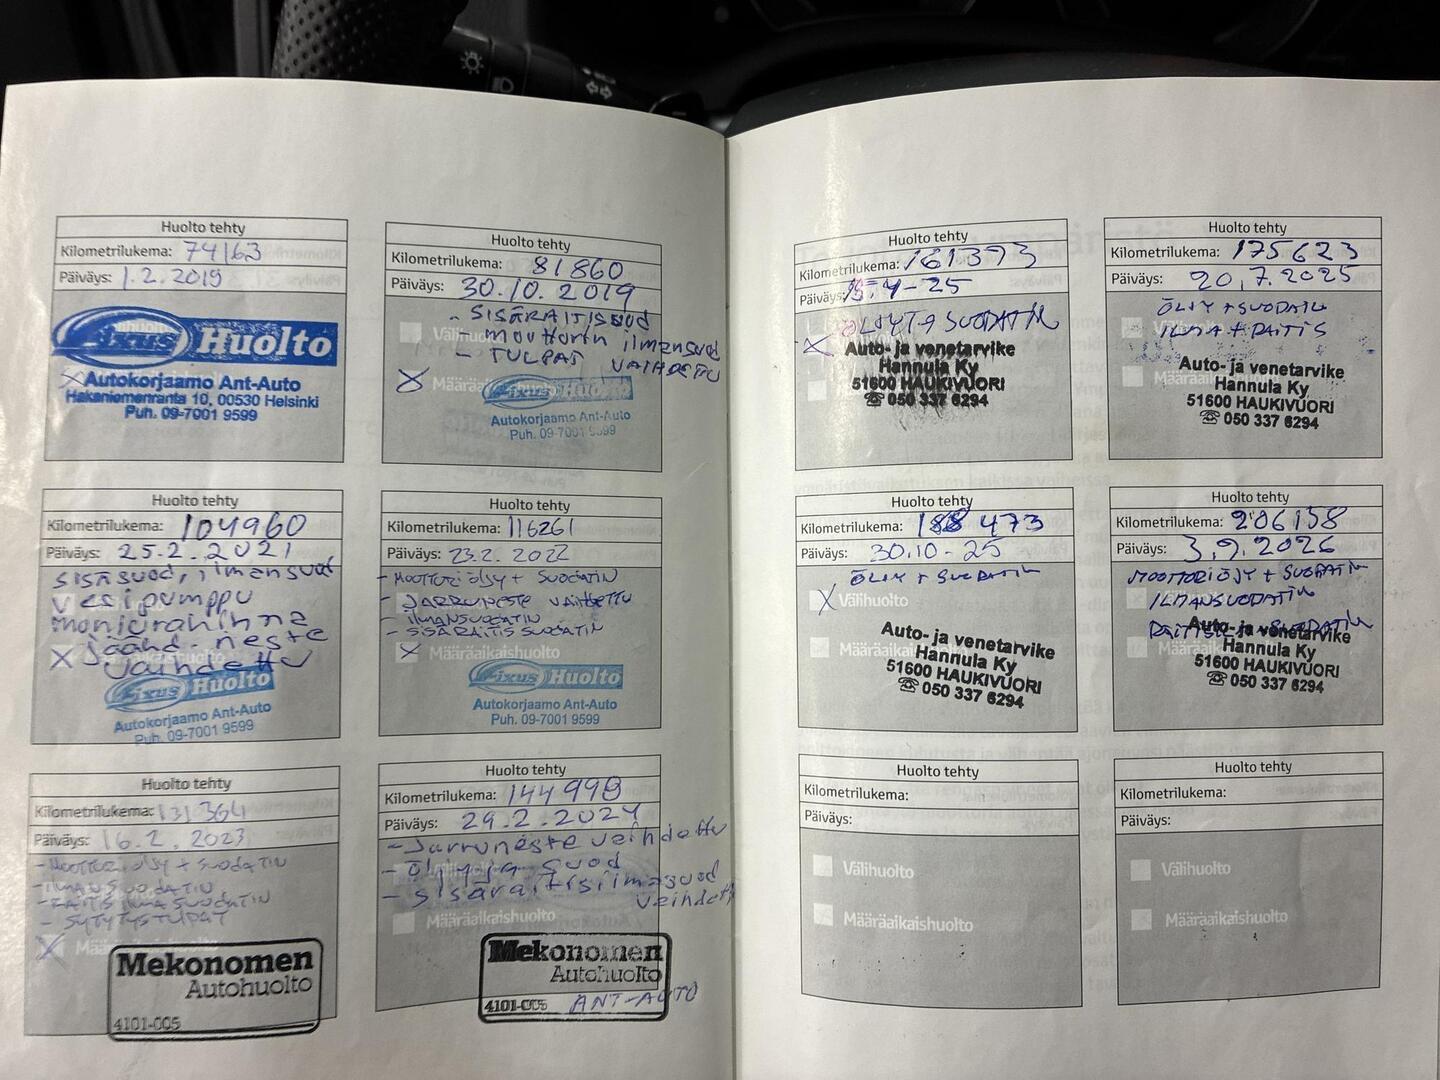 Huolto tehty
Kilometrilukema: 74163
Päiväys: 1.2.2019
Fixus Huolto
Autokorjaamo Ant-Auto
Hakaniemenranta 10, 00530 Helsinki
Puh. 09-7001 9599
Huolto tehty
Kilometrilukema: 81860
Päiväys: 30.10.2019
- SISÄRAITISSUOD
- moottorin ilmansuod
- TULPAT VAIHDETTU
Määräaikaishuolto
Fixus Huolto
Autokorjaamo Ant-Auto
Puh. 09-7001 9599
Huolto tehty
Kilometrilukema: 104960
Päiväys: 25.2.2021
sisäsuod, ilmansuod
vesipumppu
moniurahihna
jäähd. neste
vaihdettu
Fixus Huolto
Autokorjaamo Ant-Auto
Puh. 09-7001 9599
Huolto tehty
Kilometrilukema: 116261
Päiväys: 23.2.2022
- MOOTTORIÖLJY + SUODATIN
- JARRUNESTE VAIHDETTU
- ILMANSUODATIN
- SISÄRAITIS SUODATIN
Määräaikaishuolto
Fixus Huolto
Autokorjaamo Ant-Auto
Puh. 09-7001 9599
Huolto tehty
Kilometrilukema: 131364
Päiväys: 16.2.2023
- MOOTTORIÖLJY + SUODATIN
- ILMANSUODATIN
- RAITIS ILMASUODATIN
- SYTYTYSTULPAT
Mekonomen
Autohuolto
4101-005
Huolto tehty
Kilometrilukema: 144998
Päiväys: 29.2.2024
- Jarruneste veihdettu
- Öljy ja suod
- sisäraitisilmasuod
veihdettu
Määräaikaishuolto
Mekonomen
Autohuolto
4101-005 ANT-AUTO
Huolto tehty
Kilometrilukema: 161373
Päiväys: 15.4-25
ÖLJY JA SUODATIN
Auto- ja venetarvike
Hannula Ky
51600 HAUKIVUORI
☎ 050 337 6294
Huolto tehty
Kilometrilukema: 175623
Päiväys: 20.7.2025
ÖLJY + SUODATIN
ILMA + RAITIS
Auto- ja venetarvike
Hannula Ky
51600 HAUKIVUORI
☎ 050 337 6294
Huolto tehty
Kilometrilukema: 188473
Päiväys: 30.10-25
ÖLJY + SUODATIN
Välihuolto
Määräaikaishuolto
Auto- ja venetarvike
Hannula Ky
51600 HAUKIVUORI
☎ 050 337 6294
Huolto tehty
Kilometrilukema: 206158
Päiväys: 3.9.2026
MOOTTORIÖLJY + SUODATIN
ILMANSUODATIN
Auto- ja venetarvike
Hannula Ky
51600 HAUKIVUORI
☎ 050 337 6294
Huolto tehty
Kilometrilukema:
Päiväys:
Välihuolto
Määräaikaishuolto
Huolto tehty
Kilometrilukema:
Päiväys:
Välihuolto
Määräaikaishuolto